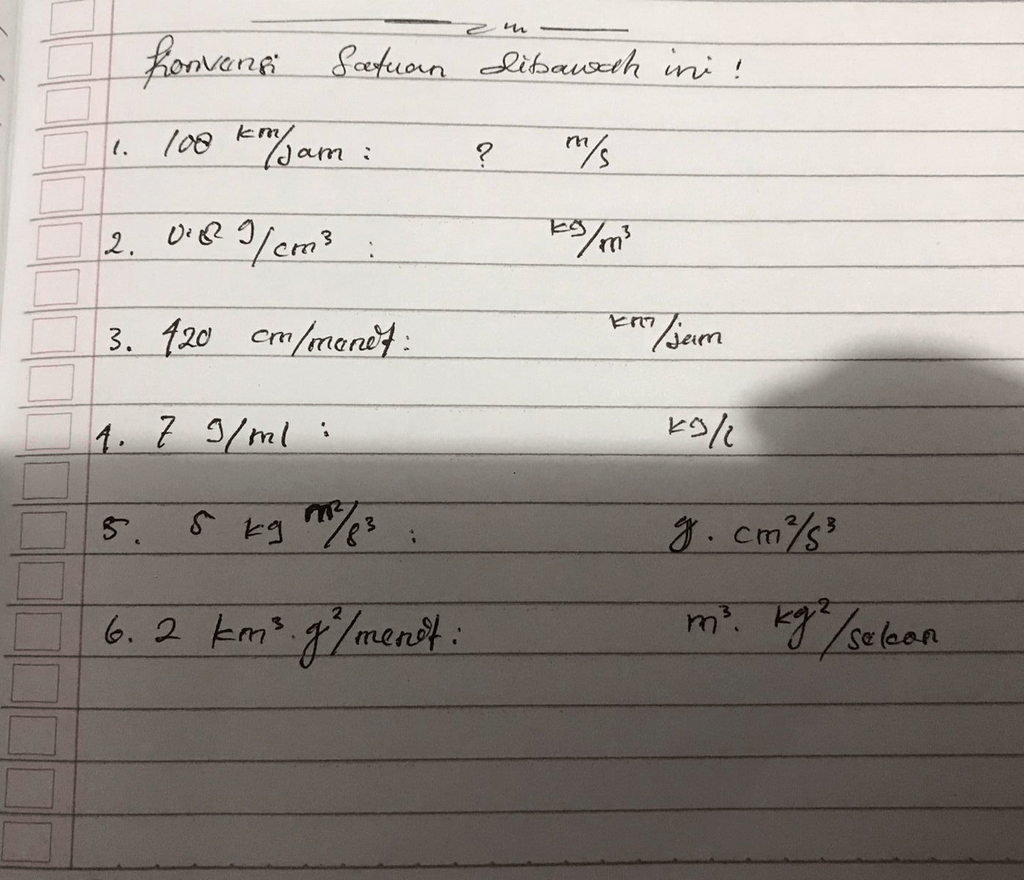 Konversi Satuan dibawah ini !
1. 108 km/jam : ? m/s
2. 0.8 g/cm³ : kg/m³
3. 420 cm/menit : km/jam
4. 7 g/ml : kg/l
5. 5 kg m²/s³ : g . cm²/s³
6. 2 km³ . g²/menit : m³ . kg²/sekon